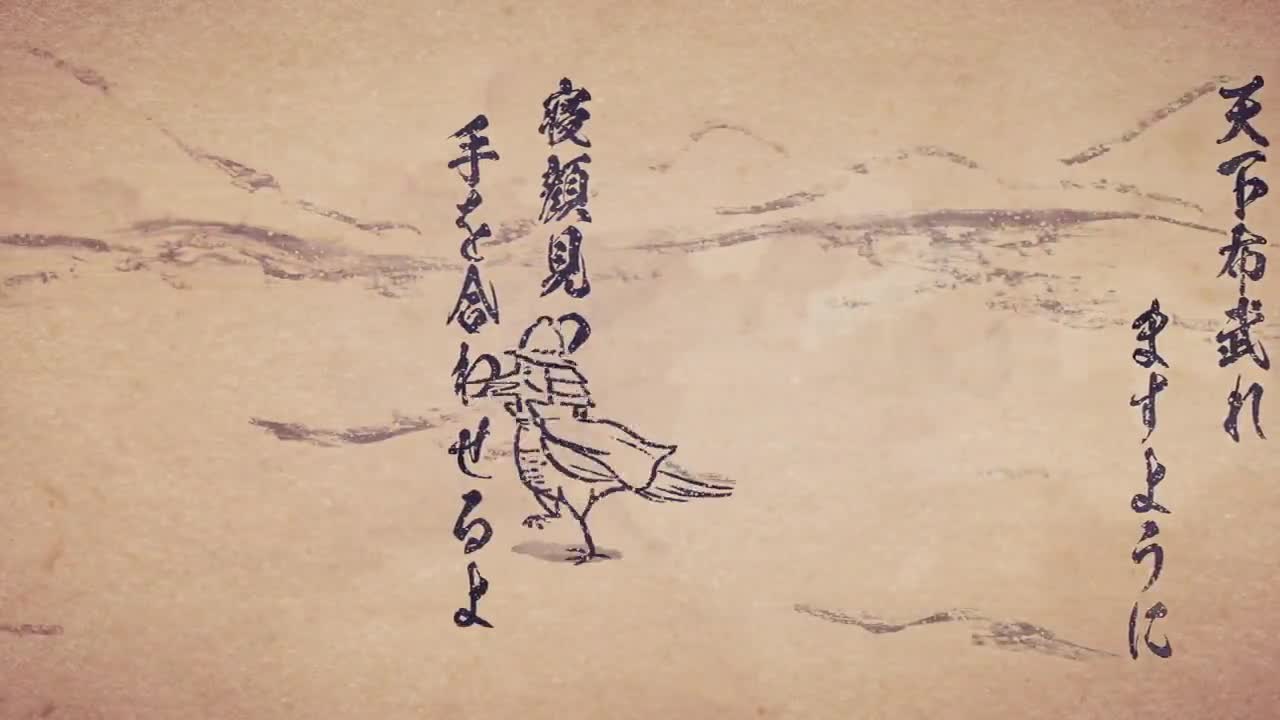 天下布武れ
ますように
寝顔見つ
手を合わせるよ